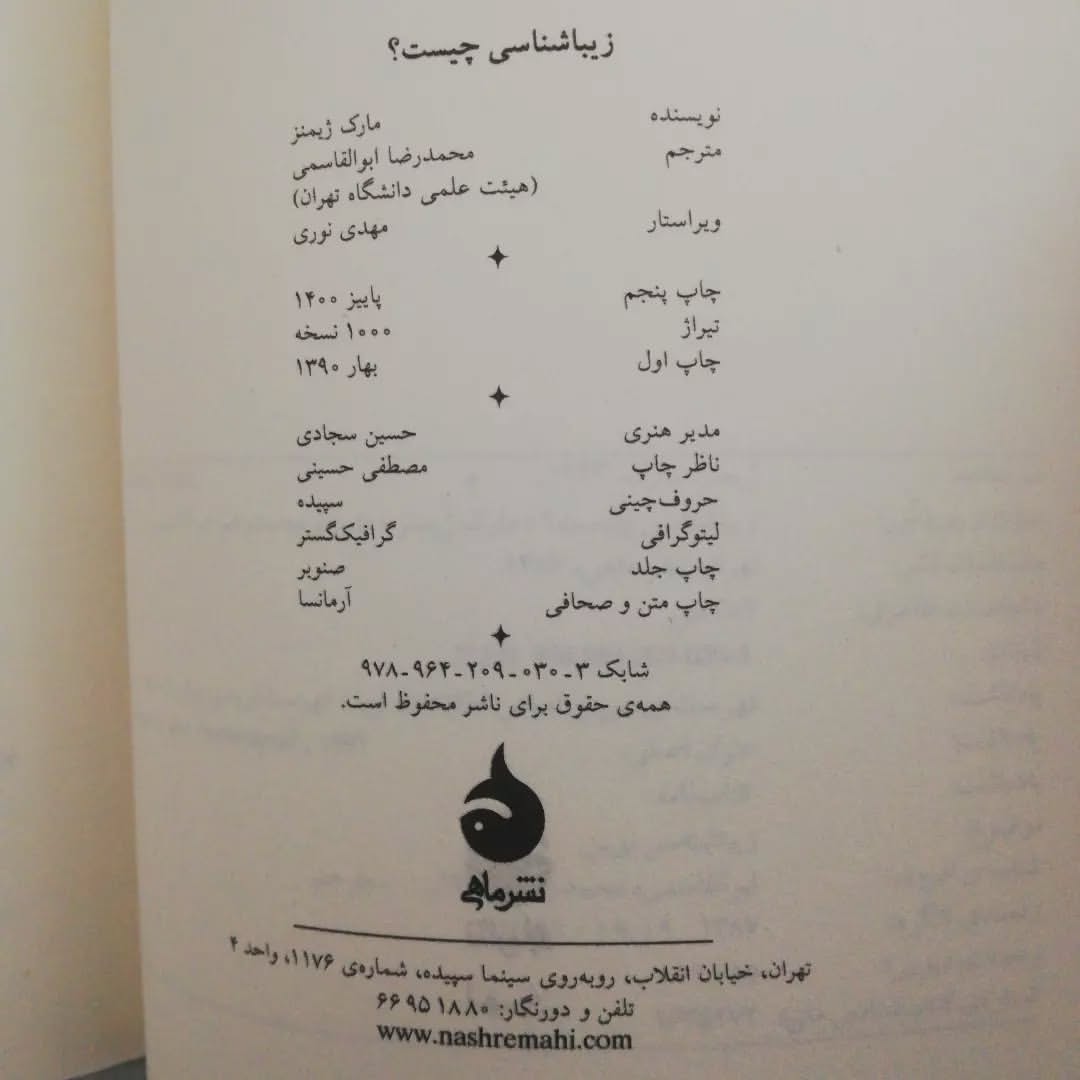 زیباشناسی چیست؟
نویسنده مارک ژیمنز
مترجم محمدرضا ابوالقاسمی
(هیئت علمی دانشگاه تهران)
ویراستار مهدی نوری
چاپ پنجم پاییز ۱۴۰۰
تیراژ ۱۰۰۰ نسخه
چاپ اول بهار ۱۳۹۰
مدیر هنری حسین سجادی
ناظر چاپ مصطفی حسینی
حروف‌چینی سپیده
لیتوگرافی گرافیک‌گستر
چاپ جلد صنوبر
چاپ متن و صحافی آرمانسا
شابک ۳-۰۳۰-۲۰۹-۹۶۴-۹۷۸
همه‌ی حقوق برای ناشر محفوظ است.
نشرماهی
تهران، خیابان انقلاب، روبه‌روی سینما سپیده، شماره‌ی ۱۱۷۶، واحد ۴
تلفن و دورنگار: ۶۶۹۵۱۸۸۰
www.nashremahi.com